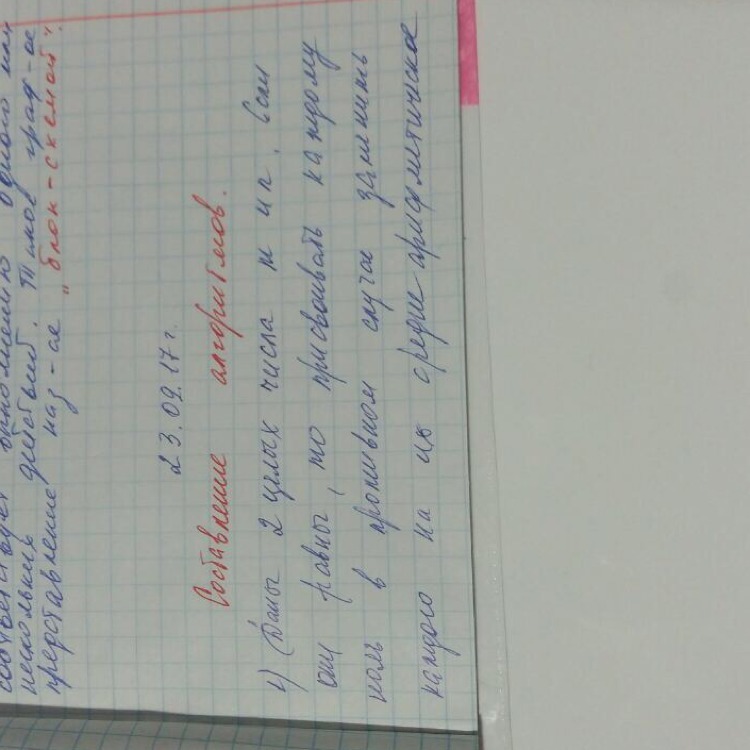 соответствует выполнению одного или
нескольких действий. Такое граф-ое
представление наз-ое "блок-схемой".
23.09.17г.
Составление алгоритмов.
1) Даны 2 целых числа m и n. Если
они равны, то присваивать каждому
ноль в противном случае заменить
каждого на их средне арифметическое